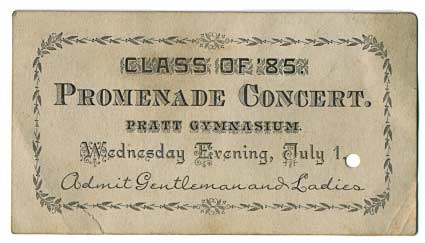 CLASS OF '85.
PROMENADE CONCERT.
PRATT GYMNASIUM.
Wednesday Evening, July 1.
Admit Gentleman and Ladies